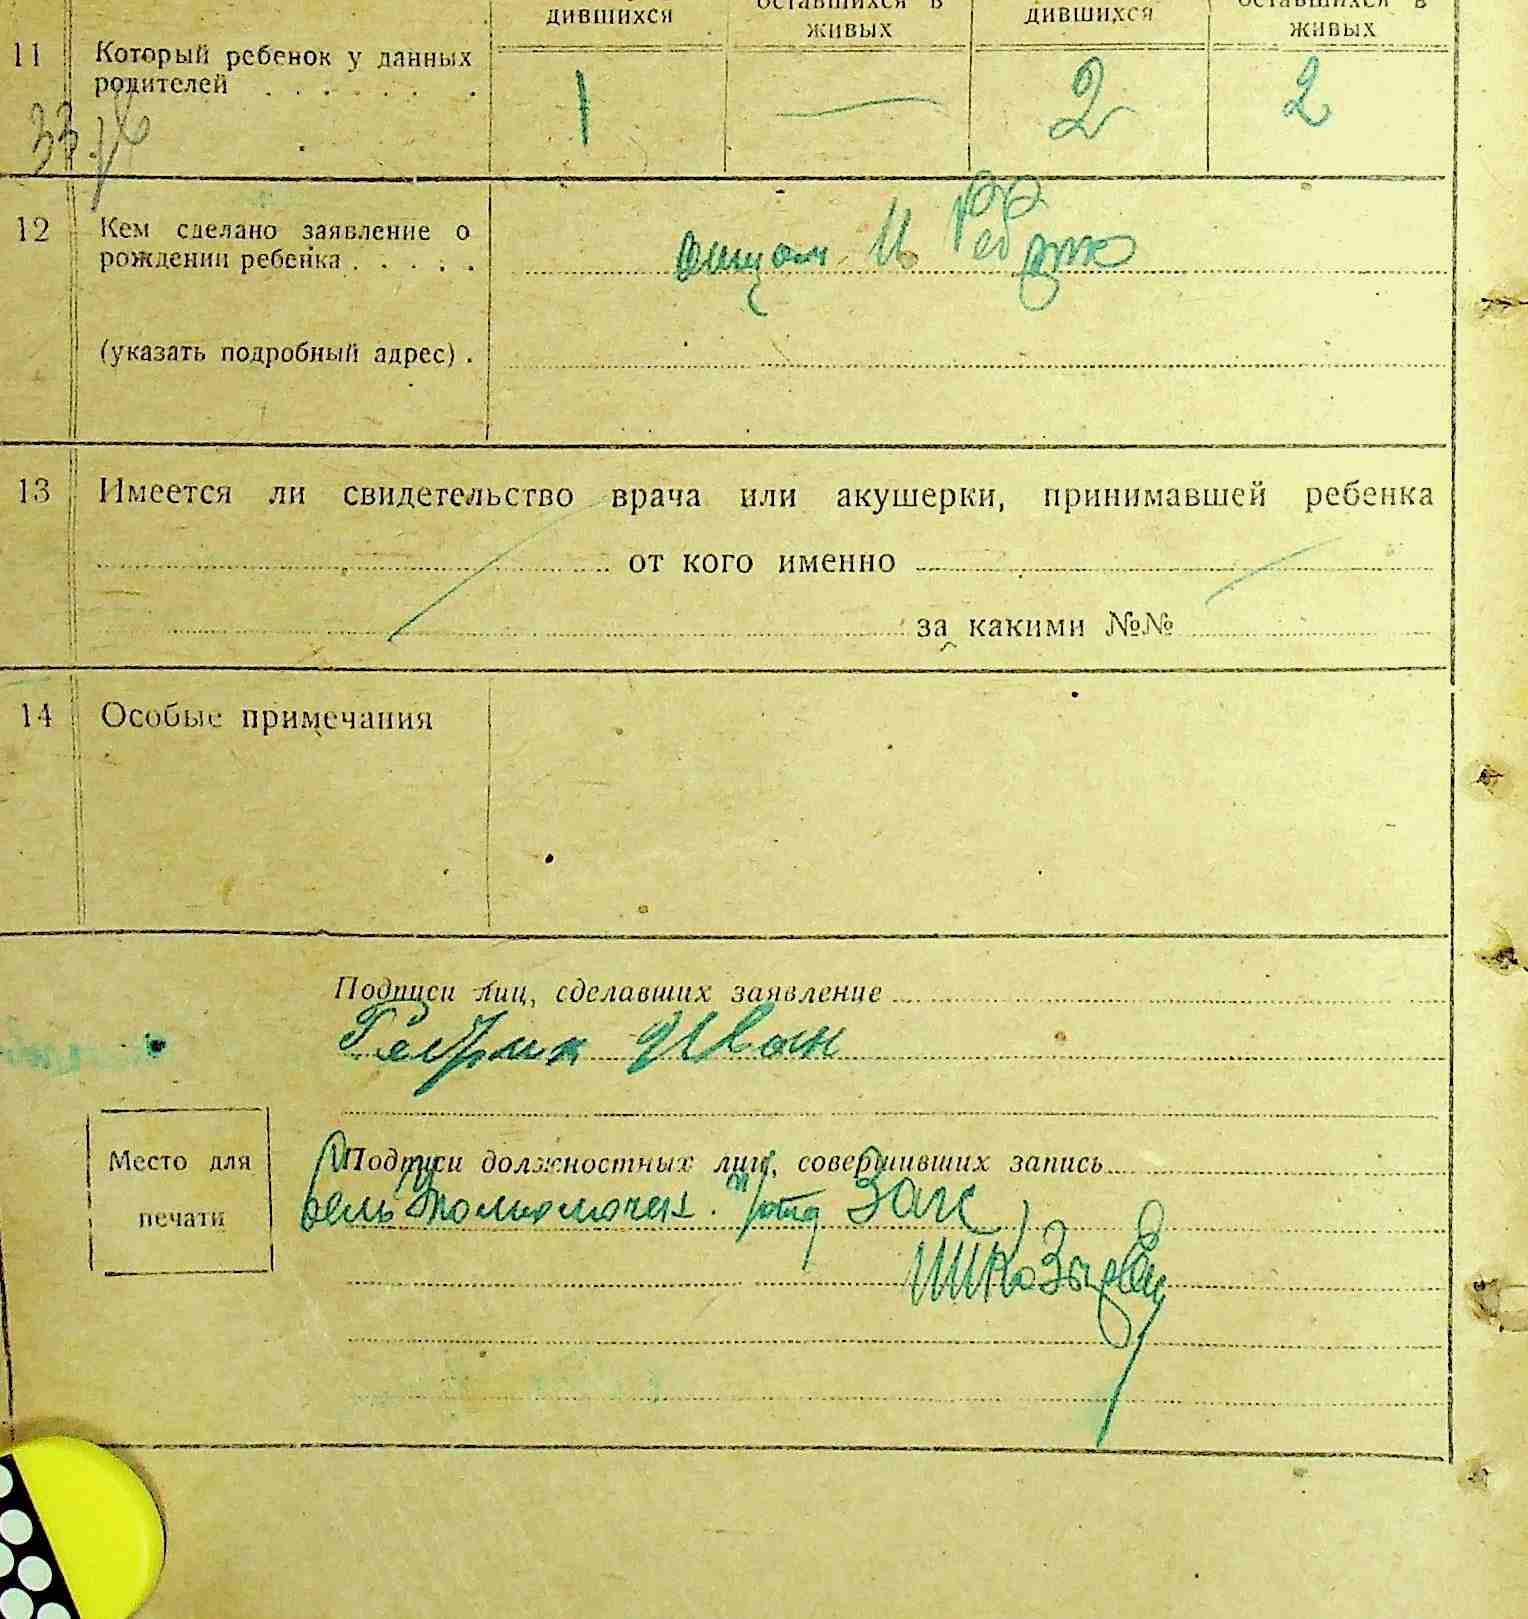 дившихся оставшихся в дившихся оставшихся в
живых живых
11 Который ребенок у данных
родителей . . . . . . . 1 — 2 2
12 Кем сделано заявление о
рождении ребенка . . . . . отцом И
(указать подробный адрес) .
13 Имеется ли свидетельство врача или акушерки, принимавшей ребенка
от кого именно
за какими №№
14 Особые примечания
Подписи лиц, сделавших заявление
Иван
Место для Подписи должностных лиц, совершивших запись
печати Загс